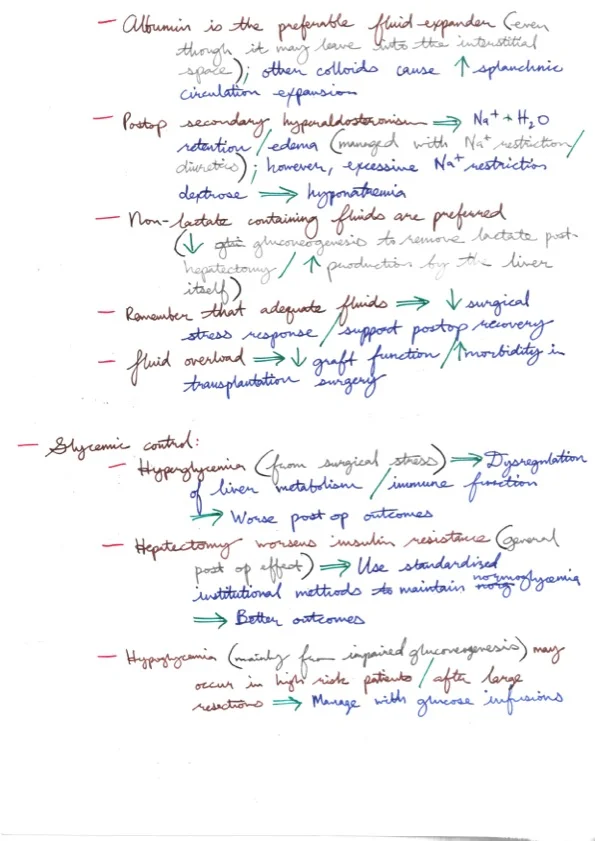 — Albumin is the preferable fluid expander (even
though it may leave into the interstitial
space); other colloids cause ↑ splanchnic
circulation expansion
— Postop secondary hyperaldosteronism ⇒ Na⁺ + H₂O
retention / edema (managed with Na⁺ restriction /
diuretics); however, excessive Na⁺ restriction
dextrose ⇒ hyponatremia
— Non-lactate containing fluids are preferred
(↓ gluconeogenesis to remove lactate post-
hepatectomy / ↑ production by the liver
itself)
— Remember that adequate fluids ⇒ ↓ surgical
stress response / support postop recovery
— fluid overload ⇒ ↓ graft function / ↑ morbidity in
transplantation surgery
— Glycemic control:
— Hyperglycemia (from surgical stress) ⇒ Dysregulation
of liver metabolism / immune function
⇒ Worse post op outcomes
— Hepatectomy worsens insulin resistance (general
post op effect) ⇒ Use standardized
institutional methods to maintain normoglycemia
⇒ Better outcomes
— Hypoglycemia (mainly from impaired gluconeogenesis) may
occur in high risk patients / after large
resections ⇒ Manage with glucose infusions